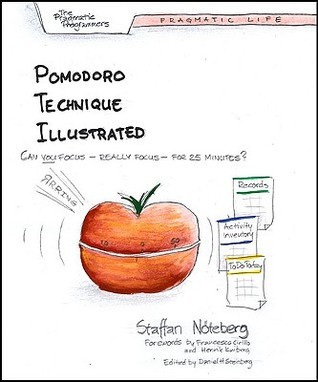 The
Pragmatic
Programmers
PRAGMATIC LIFE
POMODORO
TECHNIQUE
ILLUSTRATED
CAN YOU FOCUS – REALLY FOCUS – FOR 25 MINUTES?
RRRING
Records
Activity
Inventory
ToDo Today
10 0 50
Staffan Nöteberg
Forewords by Francesco Cirillo
and Henrik Kniberg
Edited by Daniel H Steinberg